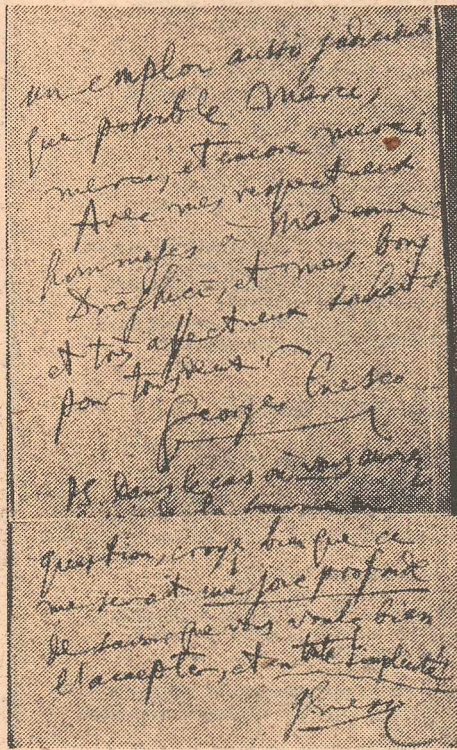 un emploi aussi judicieux
que possible. Merci,
merci, et encore merci
Avec mes respectueux
hommages à Madame
Draghici, et mes bons
et très affectueux souhaits
pour tous deux.
Georges Enesco
PS. Dans le cas où vous auriez
de la somme en
question, croyez bien que ce
me serait une joie profonde
de savoir que vous voulez bien
l'accepter, et en toute simplicité
GEnesco